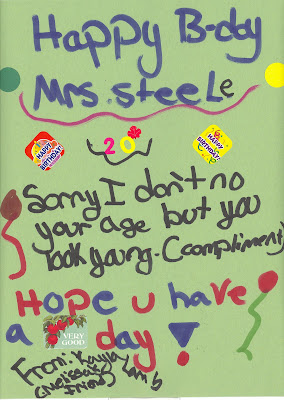 Happy B-day
Mrs. steeLe
HAPPY BIRTHDAY!
20
HAPPY BIRTHDAY!
Sorry I don't no
your age but you
look young-(compliment)
Hope u have
a VERY GOOD day!
From: Kayla
(Melissa's
Friend)